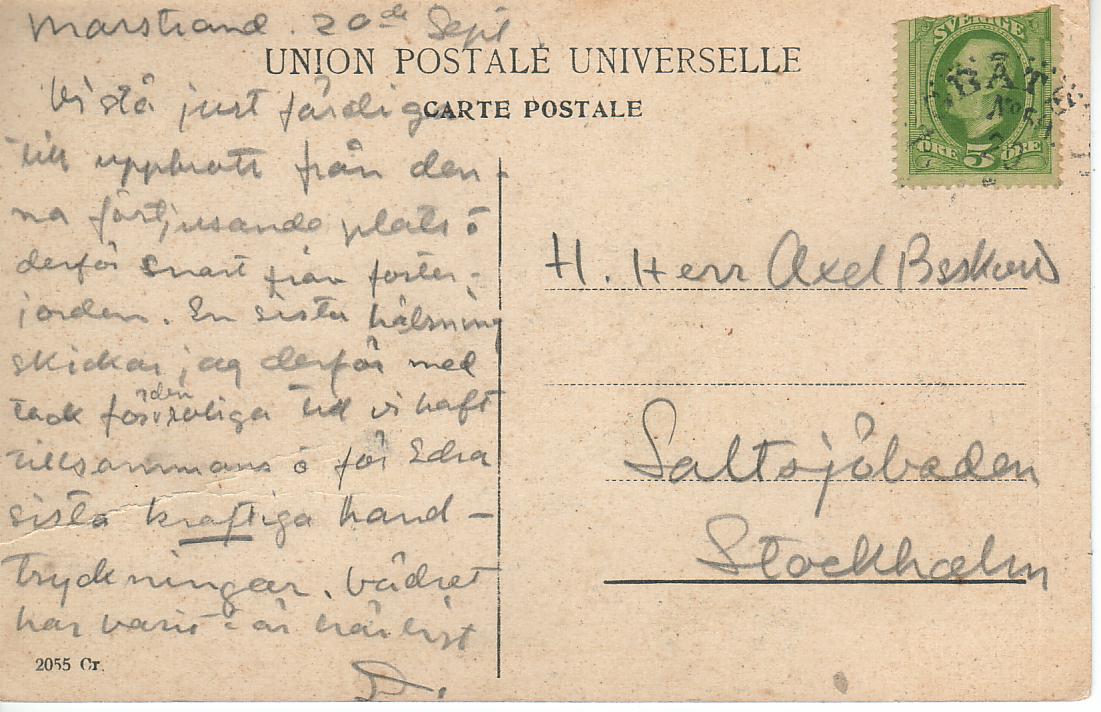 Marstrand. 20de Sept
UNION POSTALE UNIVERSELLE
CARTE POSTALE
SVERIGE
5
ÖRE ÖRE
BÅT
No 59
Vi stå just färdiga
till uppbrott från den-
na förtjusande plats o
derför snart från foster-
jorden. En sista hälsning
skickar jag derför med
tack för den roliga tid vi haft
tillsammans o för Edra
sista kraftiga hand-
tryckningar. Vädret
har varit - är härligt
H. Herr Axel Beskow
Saltsjöbaden
Stockholm
2055 Cr.